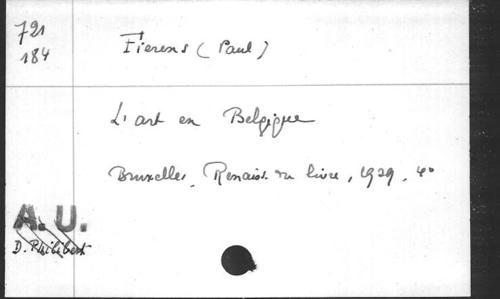 721
184
Fierens (Paul)
L'art en Belgique
Bruxelles, Renaiss. du livre, 1939, 4°
A.U.
D. Philibert